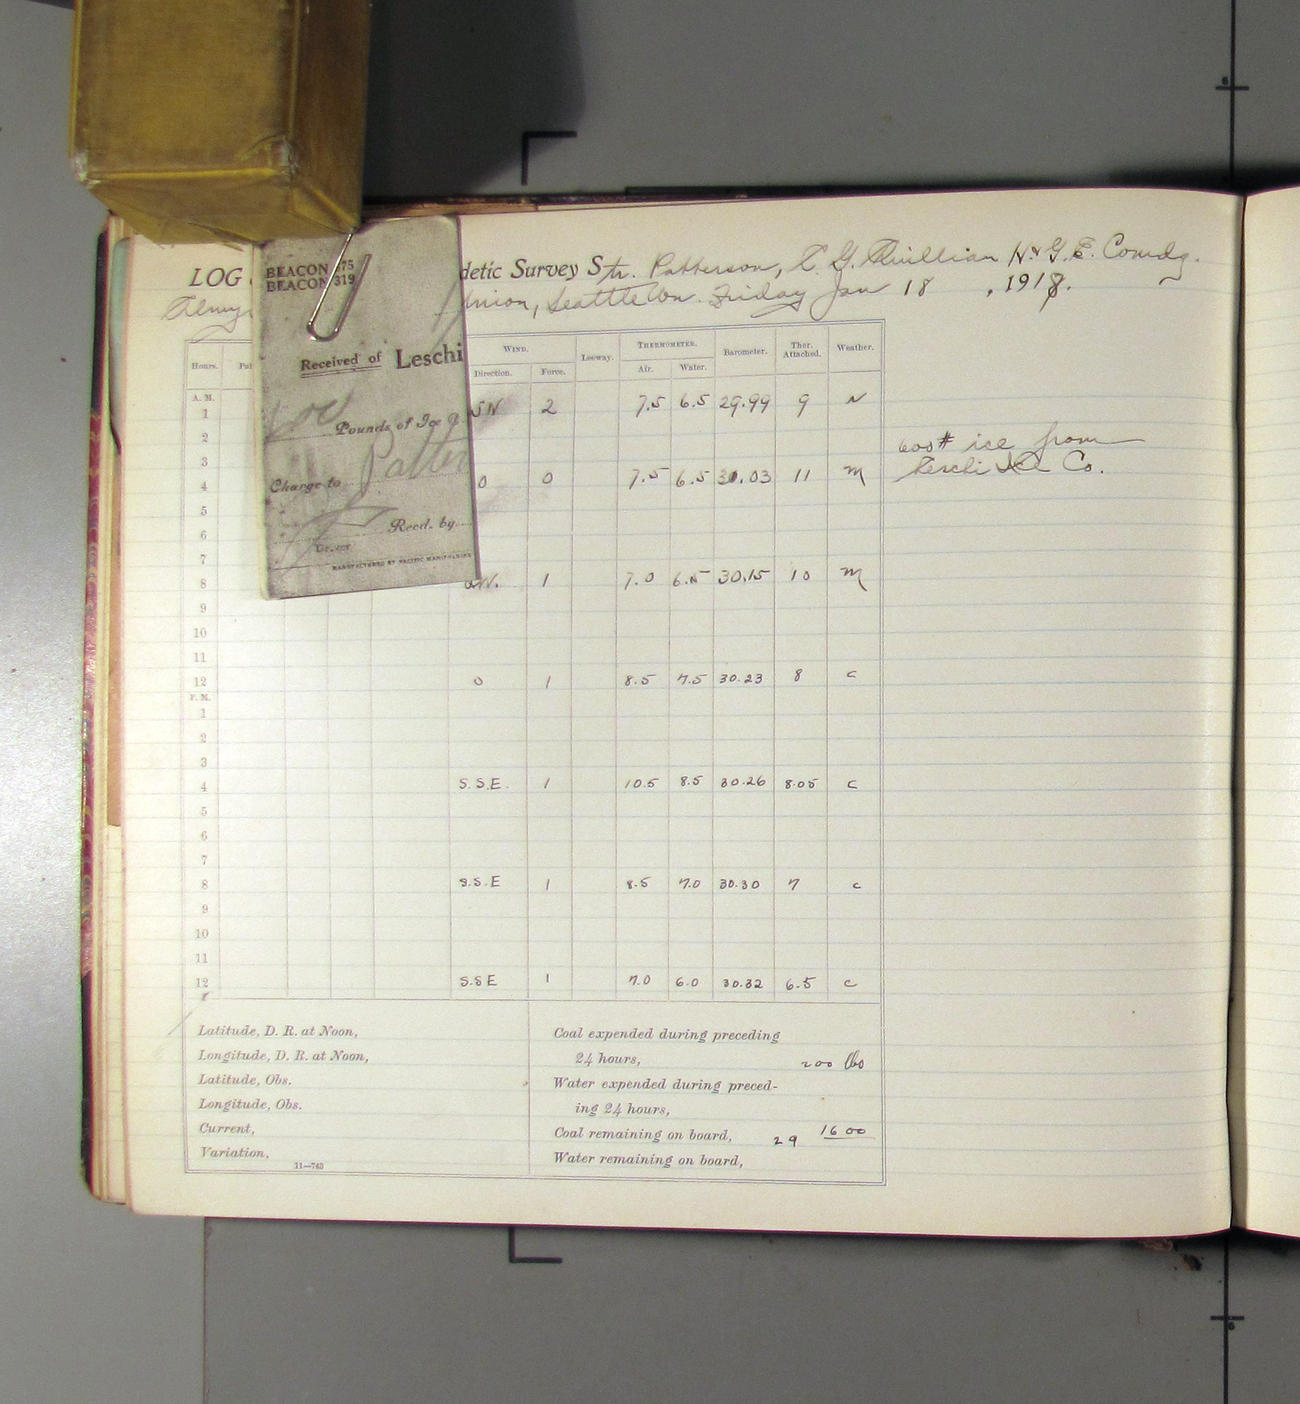 LOG
detic Survey Str. Patterson, T. G. Quillian H. & G. E. Comdg.
Union, Seattle Wn. Friday Jan 18, 1918.
BEACON 375
BEACON 319
Received of Leschi
Pounds of Ice
Charge to Patter
Recd. by
Driver
MANUFACTURED BY PACIFIC
Hours. WIND. Leeway. THERMOMETER. Barometer. Ther. Attached. Weather.
Direction. Force. Air. Water.
A. M.
1 2 7.5 6.5 29.99 9
2
600# ice from
3
Leschi Ice Co.
4 0 0 7.5 6.5 30.03 11 m
5
6
7
8 1 7.0 6.5 30.15 10 m
9
10
11
12 0 1 8.5 7.5 30.23 8 c
P. M.
1
2
3
4 S.S.E. 1 10.5 8.5 30.26 8.05 c
5
6
7
8 S.S.E 1 8.5 7.0 30.30 7 c
9
10
11
12 S.SE 1 7.0 6.0 30.32 6.5 c
Latitude, D. R. at Noon,
Longitude, D. R. at Noon,
Latitude, Obs.
Longitude, Obs.
Current,
Variation,
11—743
Coal expended during preceding
24 hours, 200 lbs
Water expended during preced-
ing 24 hours,
Coal remaining on board, 29 1600
Water remaining on board,